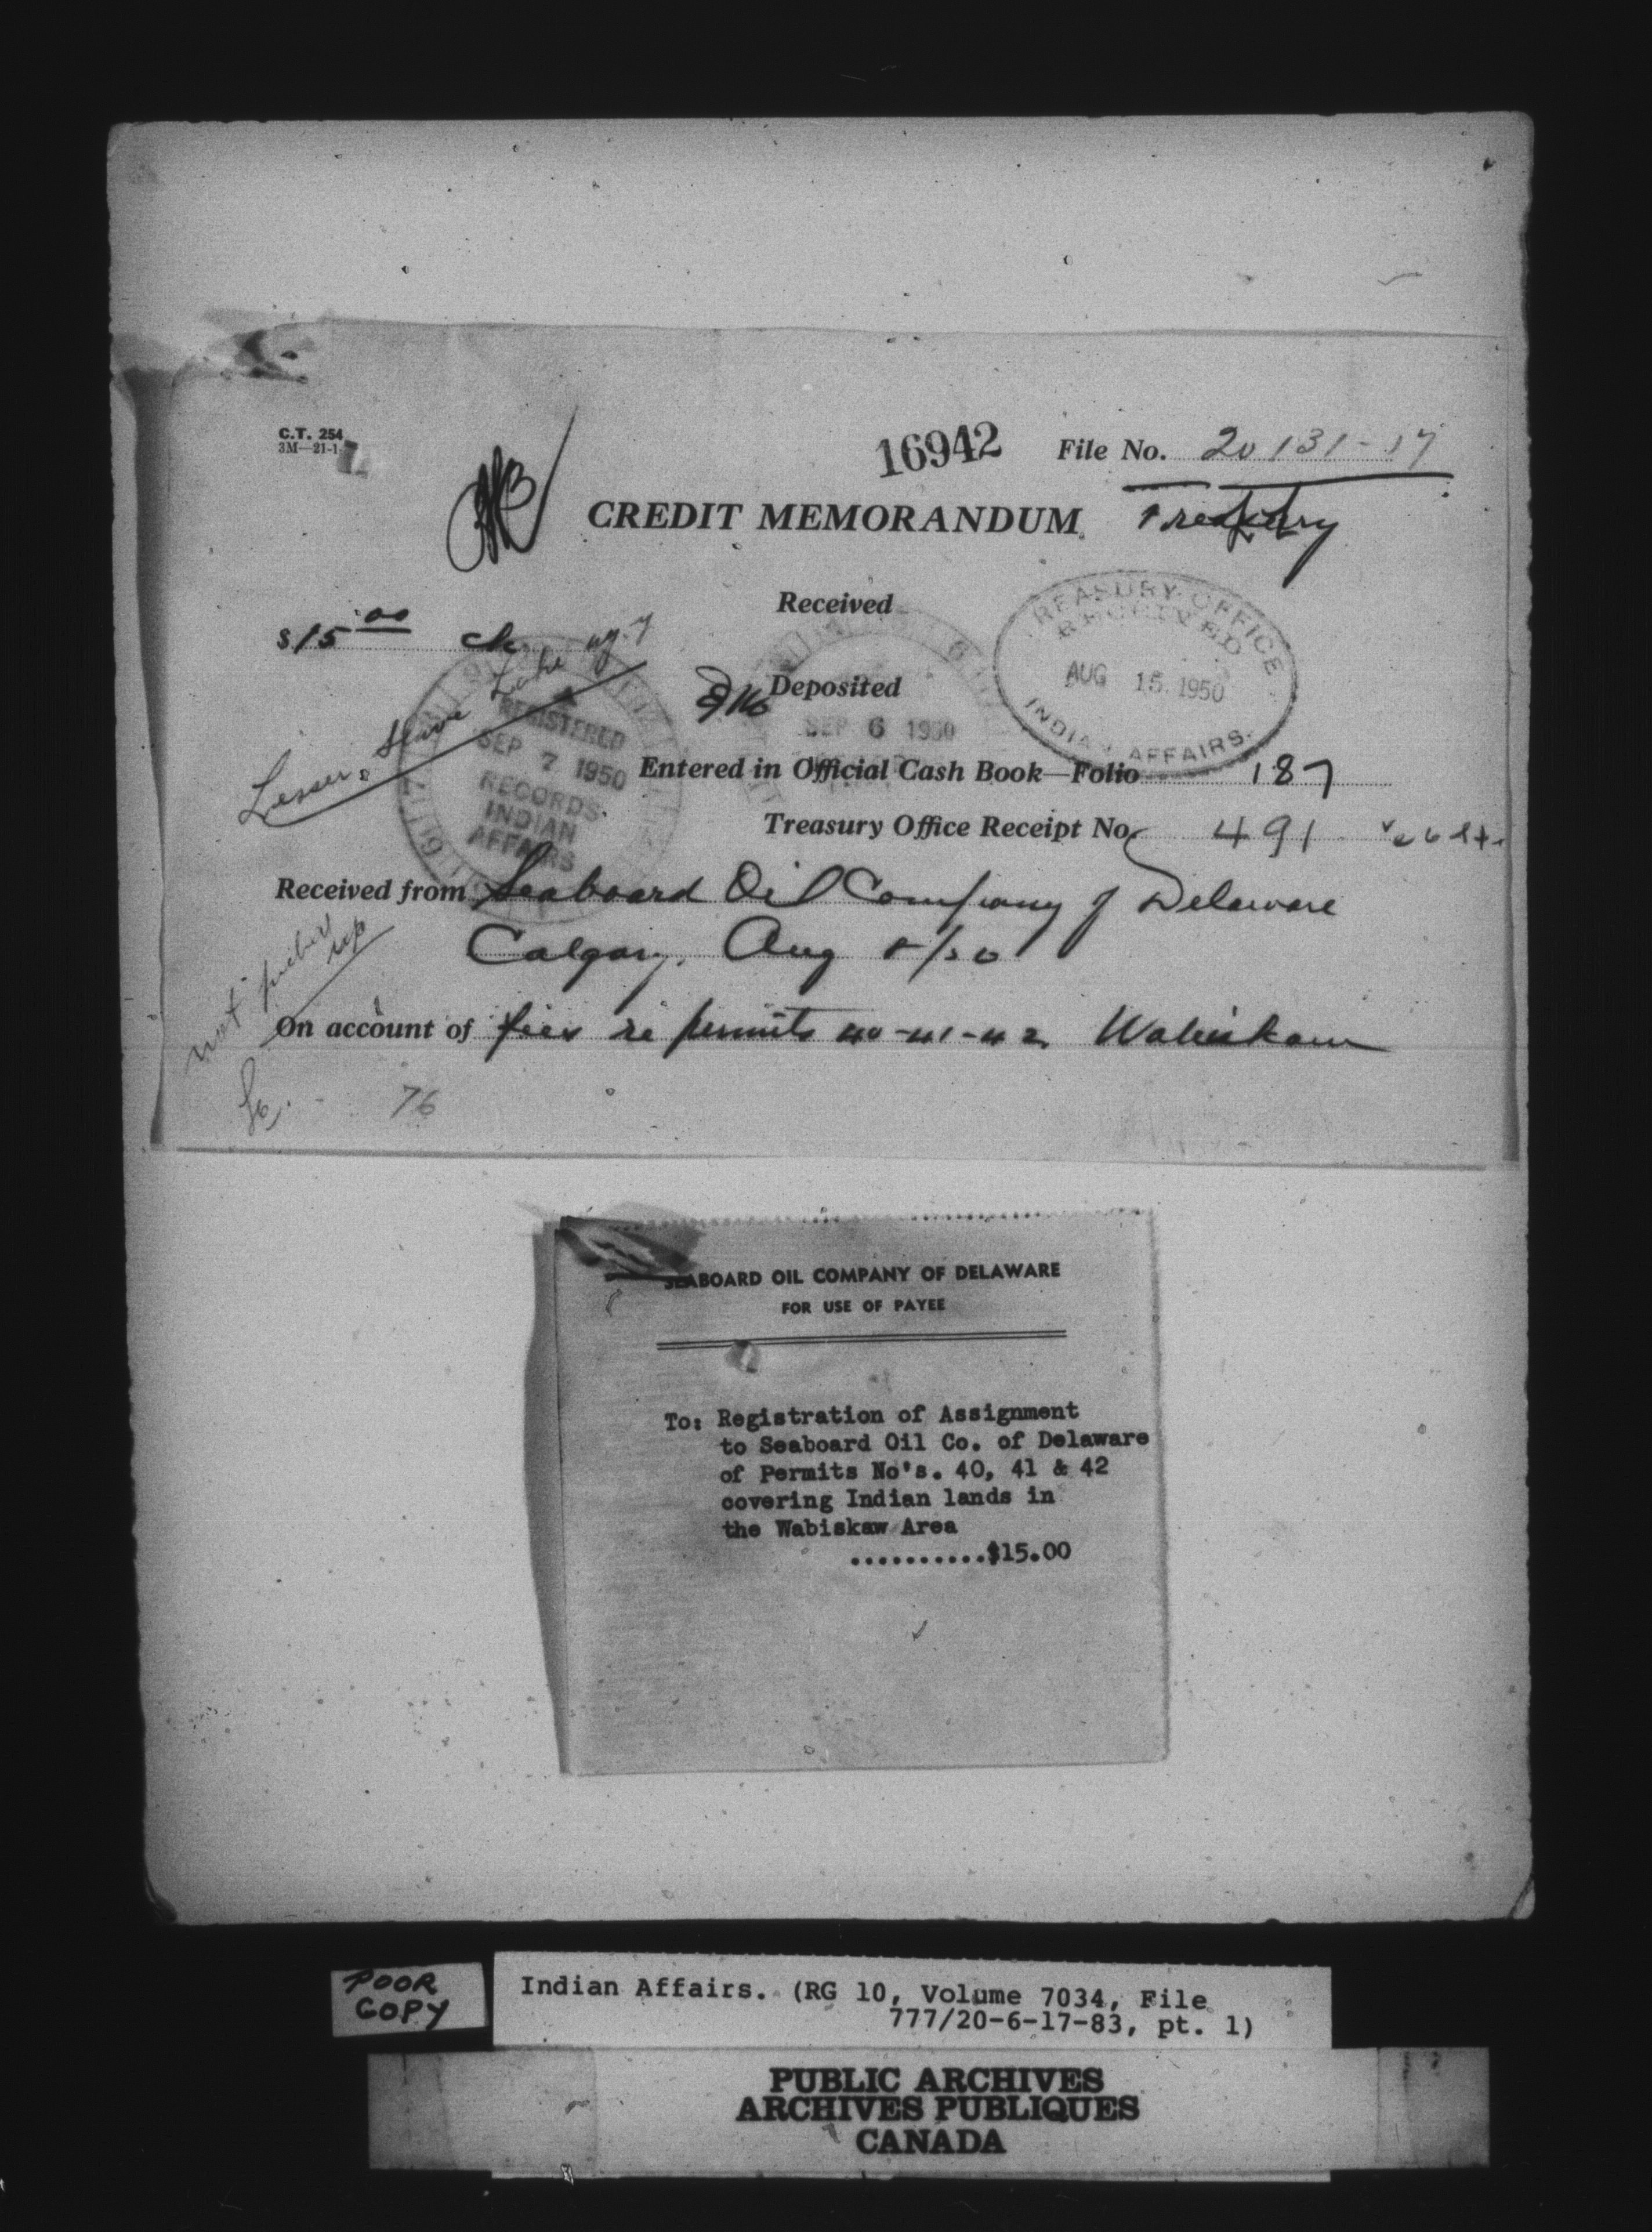 C.T. 254
3M—21-1-
16942 File No. 20131-17
CREDIT MEMORANDUM Treaty
Received
TREASURY OFFICE
RECEIVED
AUG 15 1950
INDIAN AFFAIRS.
$15.00 ck.
Lesser Slave Lake agy
Deposited
SEP 6 1950
REGISTERED
SEP 7 1950
RECORDS
INDIAN
AFFAIRS
Entered in Official Cash Book—Folio 187
Treasury Office Receipt No. 491
Received from Seaboard Oil Company of Delaware
Calgary, Aug 8/50
not
On account of fees re permits 40-41-42 Wabiskaw
76
SEABOARD OIL COMPANY OF DELAWARE
FOR USE OF PAYEE
To: Registration of Assignment
to Seaboard Oil Co. of Delaware
of Permits No's. 40, 41 & 42
covering Indian lands in
the Wabiskaw Area
..........$15.00
POOR
COPY
Indian Affairs. (RG 10, Volume 7034, File
777/20-6-17-83, pt. 1)
PUBLIC ARCHIVES
ARCHIVES PUBLIQUES
CANADA